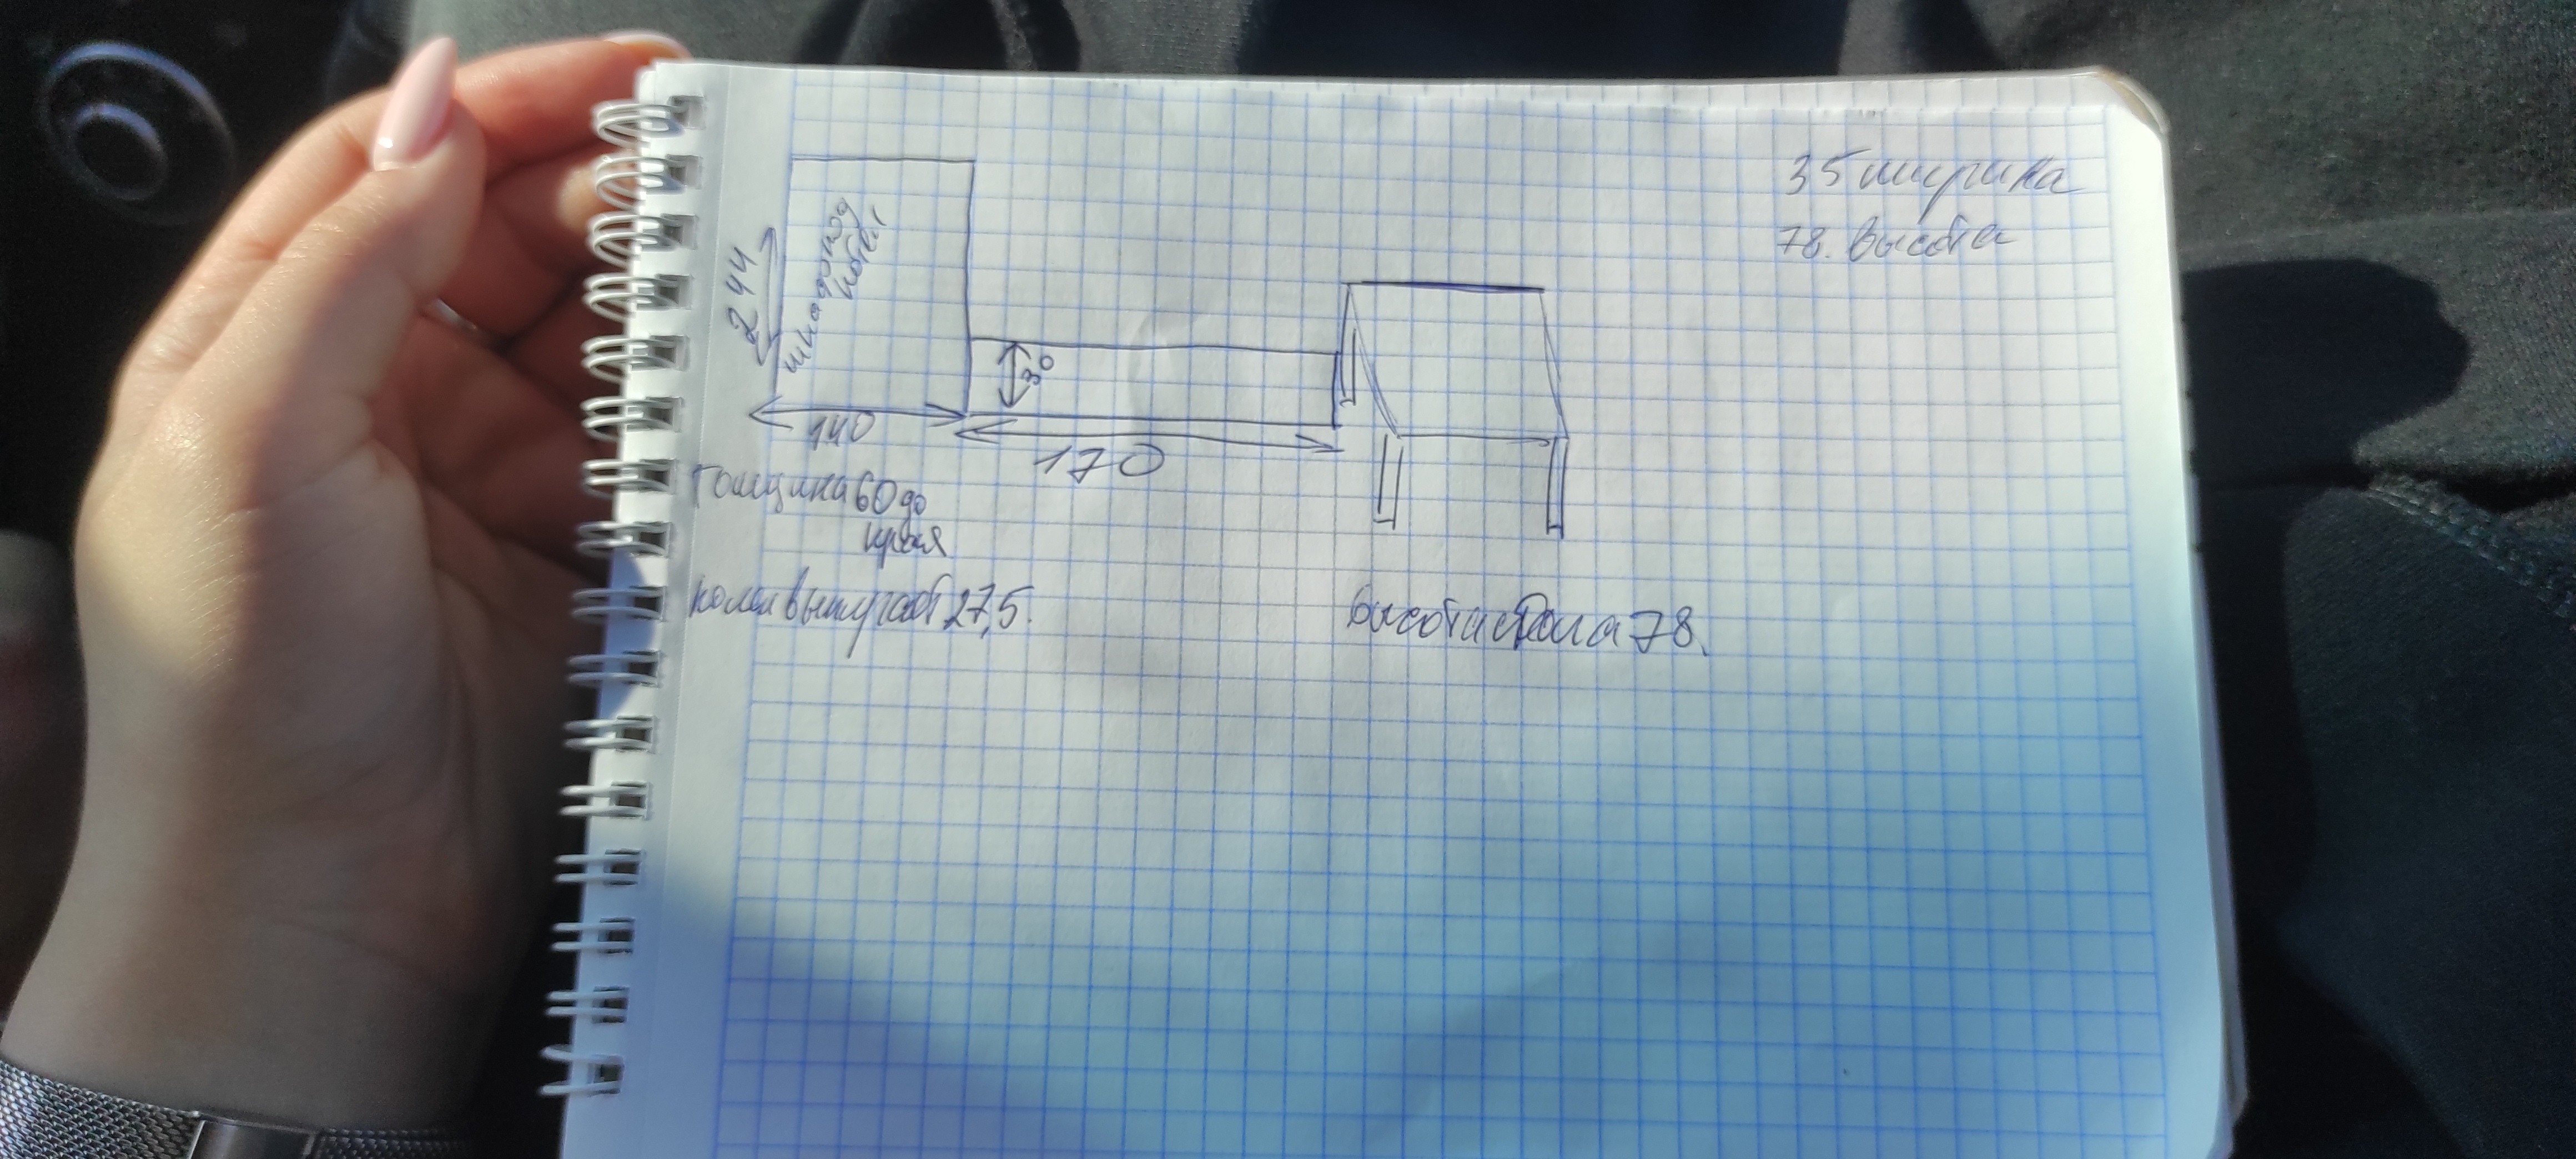 35 ширина
78. высота
244
шкаф до
30
140
170
толщина 60 до
края
колен выпускает 27,5.
высота стола 78.